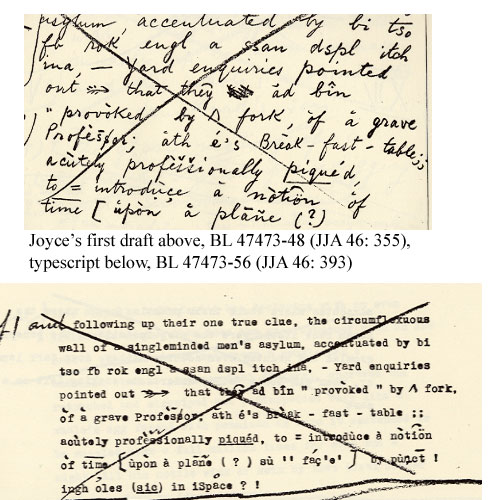 asylum, accentuated by bi tso
fb rok, engl a ssan dspl itch
ina, — Yard enquiries pointed
out ⇶ that they ād bîn
"provoked" by Λ fork, öf à grave
Profèśśor, àth é's Brèak-fast-table;;
acùtely profèššionally piquéd,
to = introdùce à nòtìòn òf
tìme [ùpòn à plàñe (?)
Joyce's first draft above, BL 47473-48 (JJA 46: 355),
typescript below, BL 47473-56 (JJA 46: 393)
and following up their one true clue, the circumflexuous
wall of a singleminded men's asylum, accentuated by bi
tso fb rok engl a ssan dspl itch ina, - Yard enquiries
pointed out ⇶ that they ad bîn " provoked " by Λ fork,
òf à grave Profèssor, àth é's Brèak - fast - table ;;
acùtely profèssionally piquéd, to = introdùce à nòtìòn
òf tìme [ùpòn à plàñe ( ? ) sù '' fàç'e' ] by pùnct !
ingh òles (sic) in iSpàce ? !